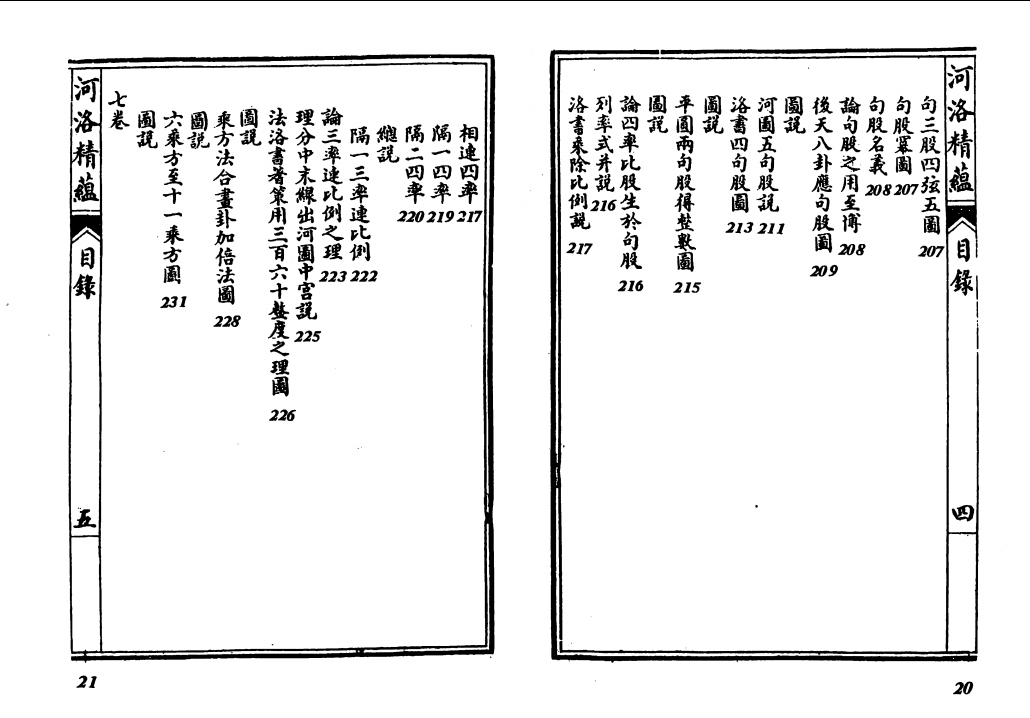 河洛精蘊
目錄
四
句三股四弦五圖 207
句股冪圖 207
句股名義 208
論句股之用至博 208
後天八卦應句股圖 209
圖說
河圖五句股說 211
洛書四句股圖 213
圖說
平圓兩句股得整數圖 215
圖說
論四率比股生於句股 216
列率式并說 216
洛書乘除比例說 217
20
相連四率 217
隔一四率 219
隔二四率 220
總說
隔一三率連比例 222
論三率連比例之理 223
理分中末線出河圖中宮說 225
法洛書蓍策用三百六十整度之理圖 226
圖說
乘方法合畫卦加倍法圖 228
圖說
六乘方至十一乘方圖 231
圖說
七卷
河洛精蘊
目錄
五
21